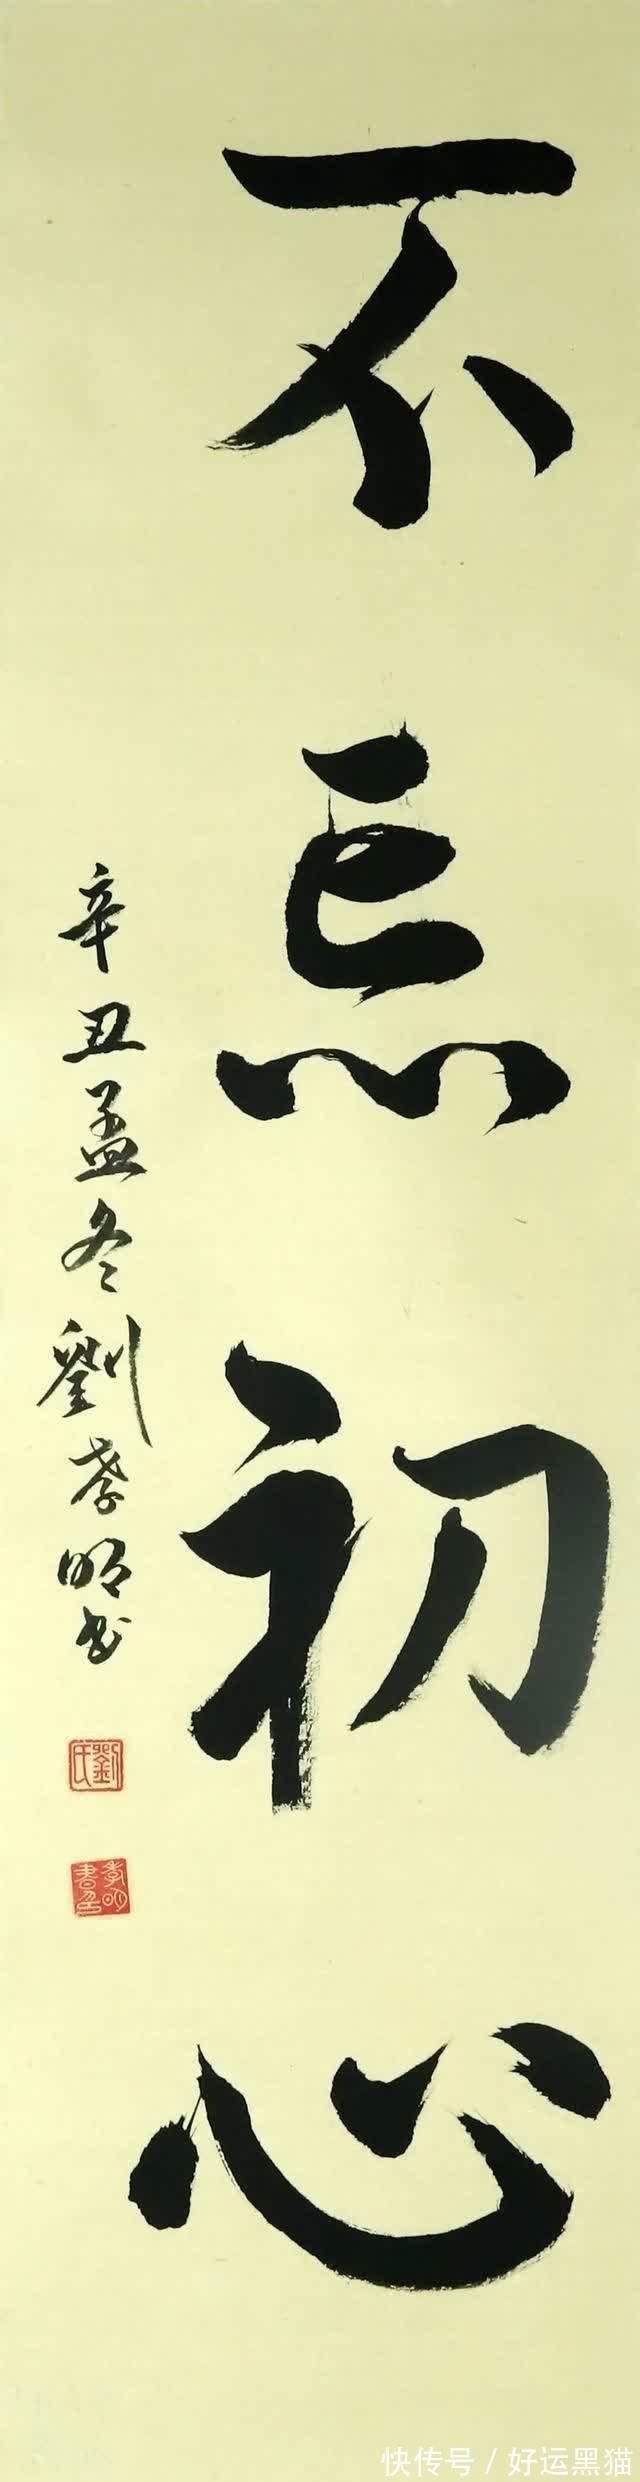 不忘初心
辛丑孟冬劉孝明书
劉氏
快传号／好运黑猫